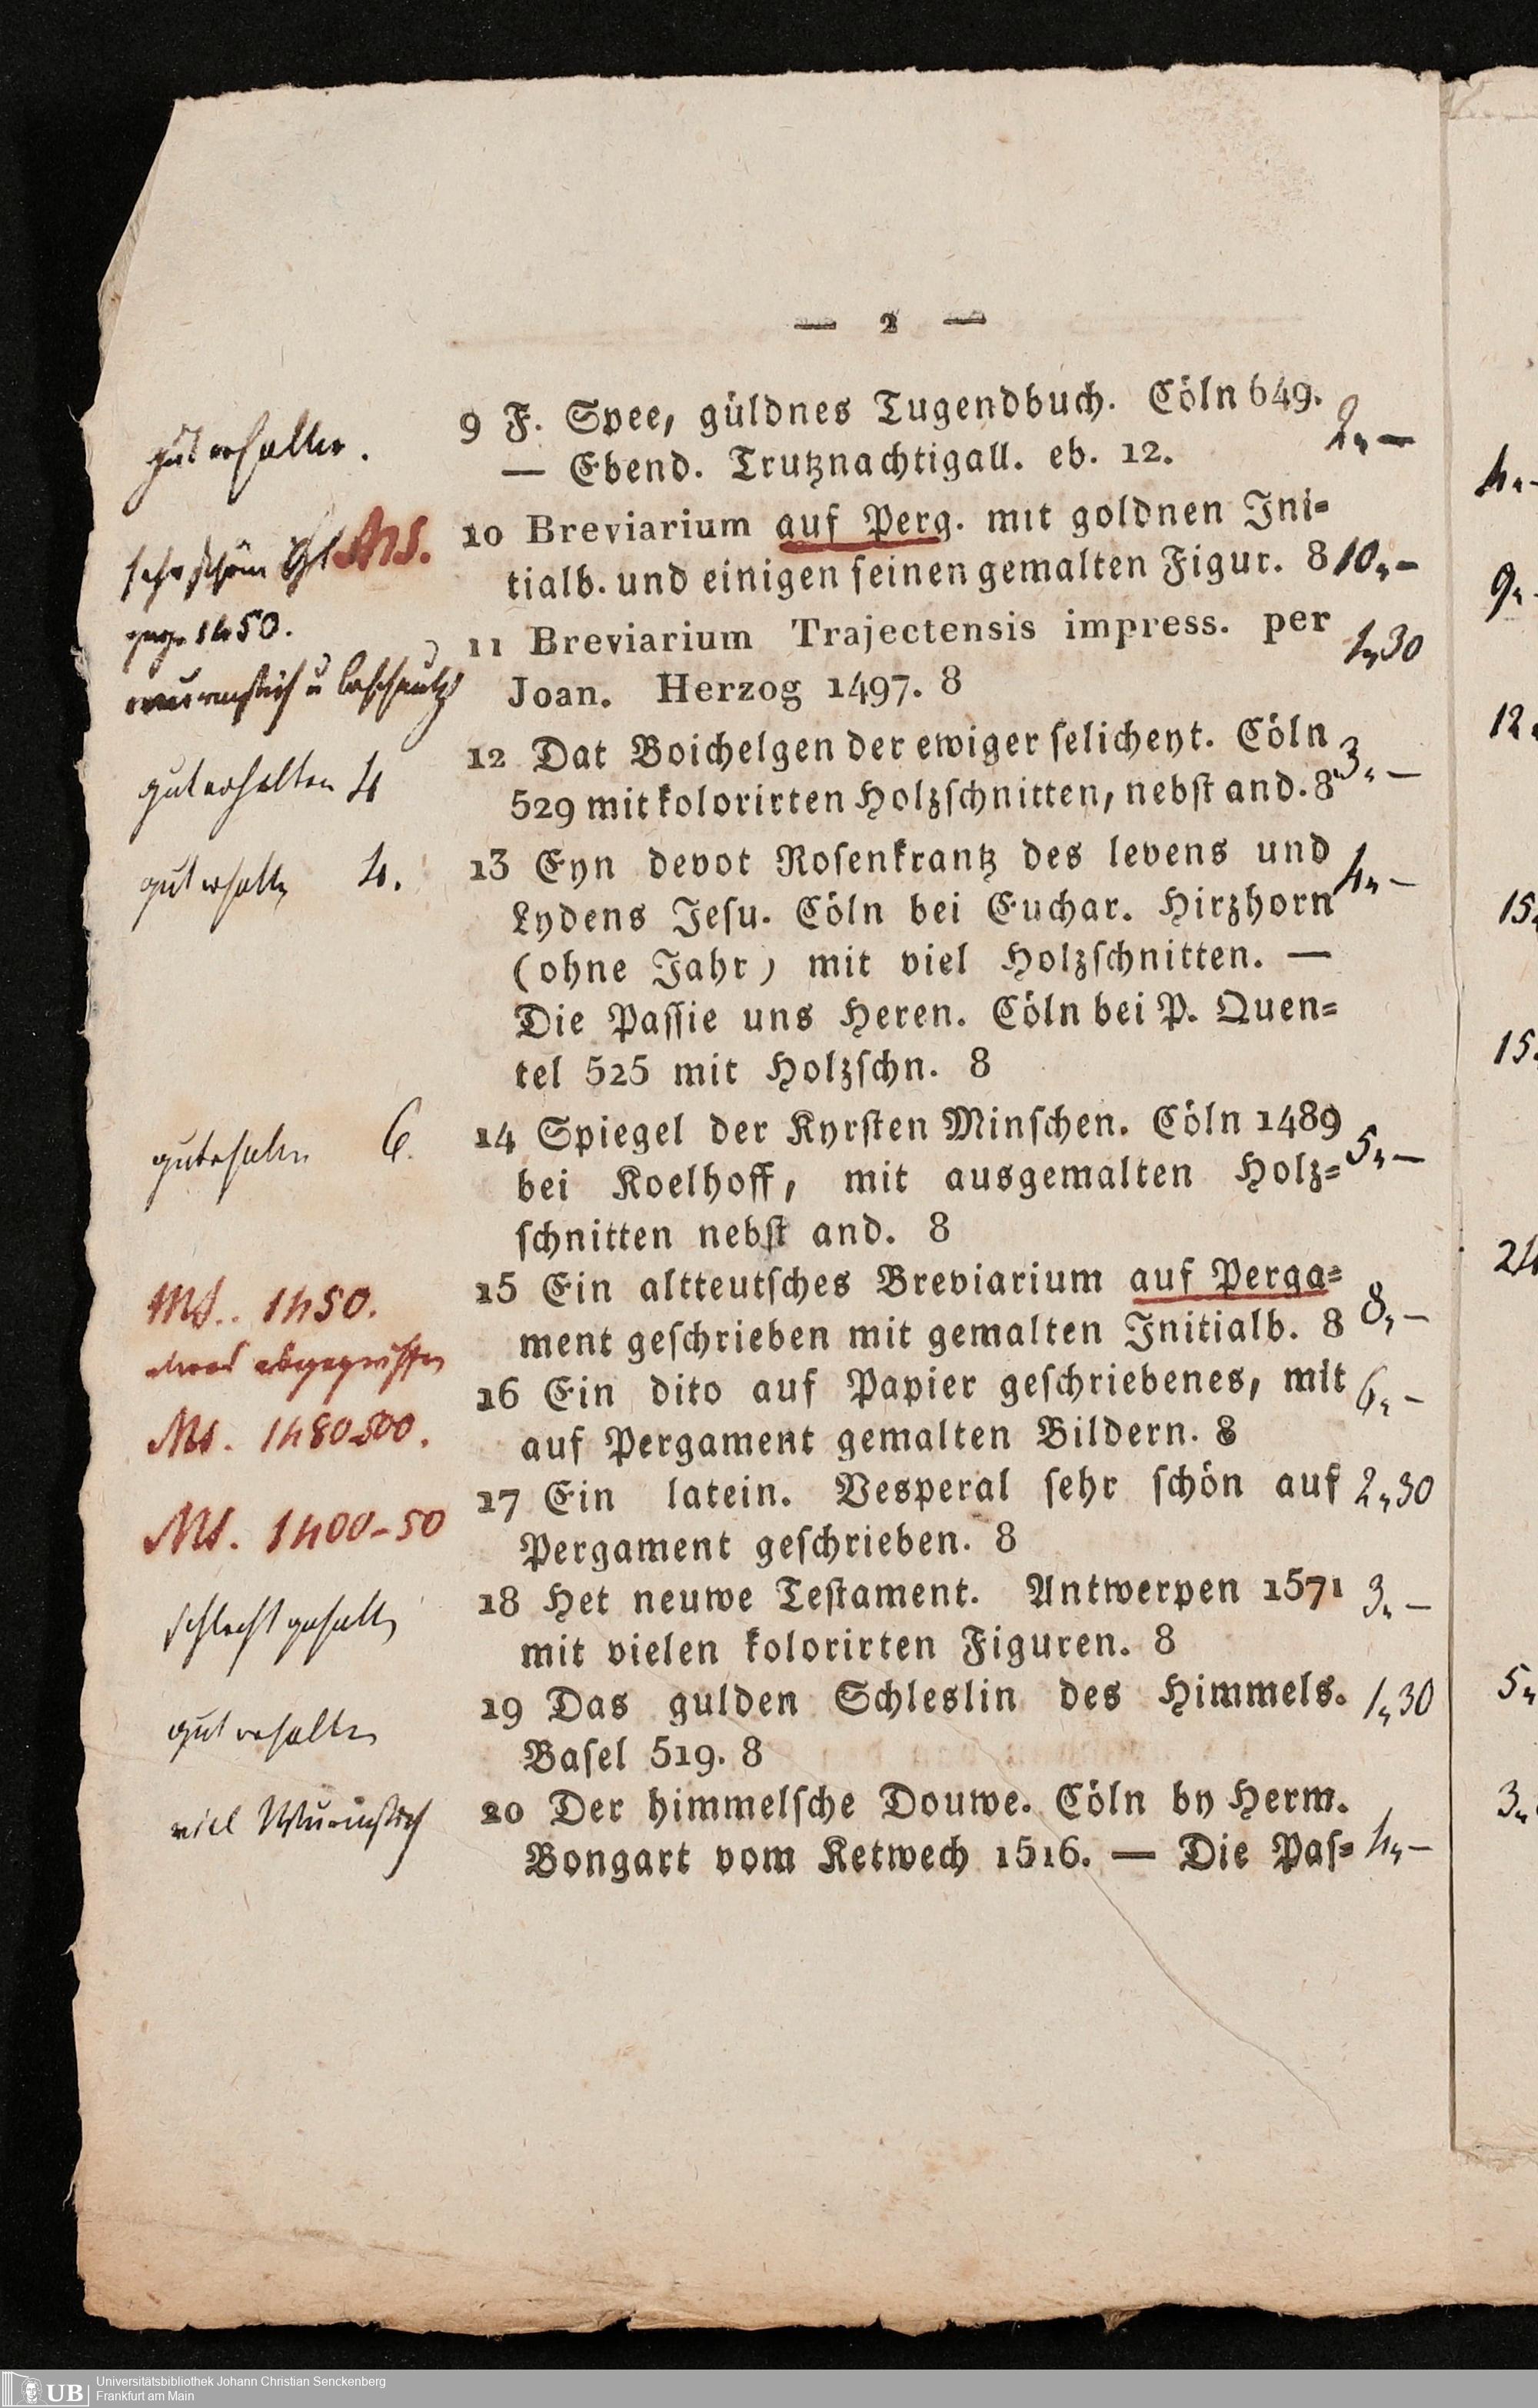 — 2 —
gut erhalten.
9 F. Spee, güldnes Tugendbuch. Cöln 649.
— Ebend. Trutznachtigall. eb. 12.
2„—
sehr schön Ms.
1450.
10 Breviarium auf Perg. mit goldnen Ini=
tialb. und einigen feinen gemalten Figur. 8
10„—
wurmstich u beschmutzt
11 Breviarium Trajectensis impress. per
Joan. Herzog 1497. 8
1„30
gut erhalten 4
12 Dat Boichelgen der ewiger selicheyt. Cöln
529 mit kolorirten Holzschnitten, nebst and. 8
3„—
gut erhalten 4.
13 Eyn devot Rosenkrantz des levens und
Lydens Jesu. Cöln bei Euchar. Hirzhorn
(ohne Jahr) mit viel Holzschnitten. —
Die Passie uns Heren. Cöln bei P. Quen=
tel 525 mit Holzschn. 8
4„—
gut erhalten 6.
14 Spiegel der Kyrsten Minschen. Cöln 1489
bei Koelhoff, mit ausgemalten Holz=
schnitten nebst and. 8
5„—
Ms. 1450.
etwas abgegriffen
15 Ein altteutsches Breviarium auf Perga=
ment geschrieben mit gemalten Initialb. 8
8„—
Ms. 1480-500.
16 Ein dito auf Papier geschriebenes, mit
auf Pergament gemalten Bildern. 8
6„—
Ms. 1400-50
17 Ein latein. Vesperal sehr schön auf
Pergament geschrieben. 8
2„30
schlecht gehalten
18 Het neuwe Testament. Antwerpen 1571
mit vielen kolorirten Figuren. 8
3„—
gut erhalten
19 Das gulden Schleslin des Himmels.
Basel 519. 8
1„30
viel Wurmstich
20 Der himmelsche Douwe. Cöln by Herm.
Bongart vom Ketwech 1516. — Die Pas=
4„—
4„-
9„-
12„
15„
15„
24
5„
3„
UB
Universitätsbibliothek Johann Christian Senckenberg
Frankfurt am Main